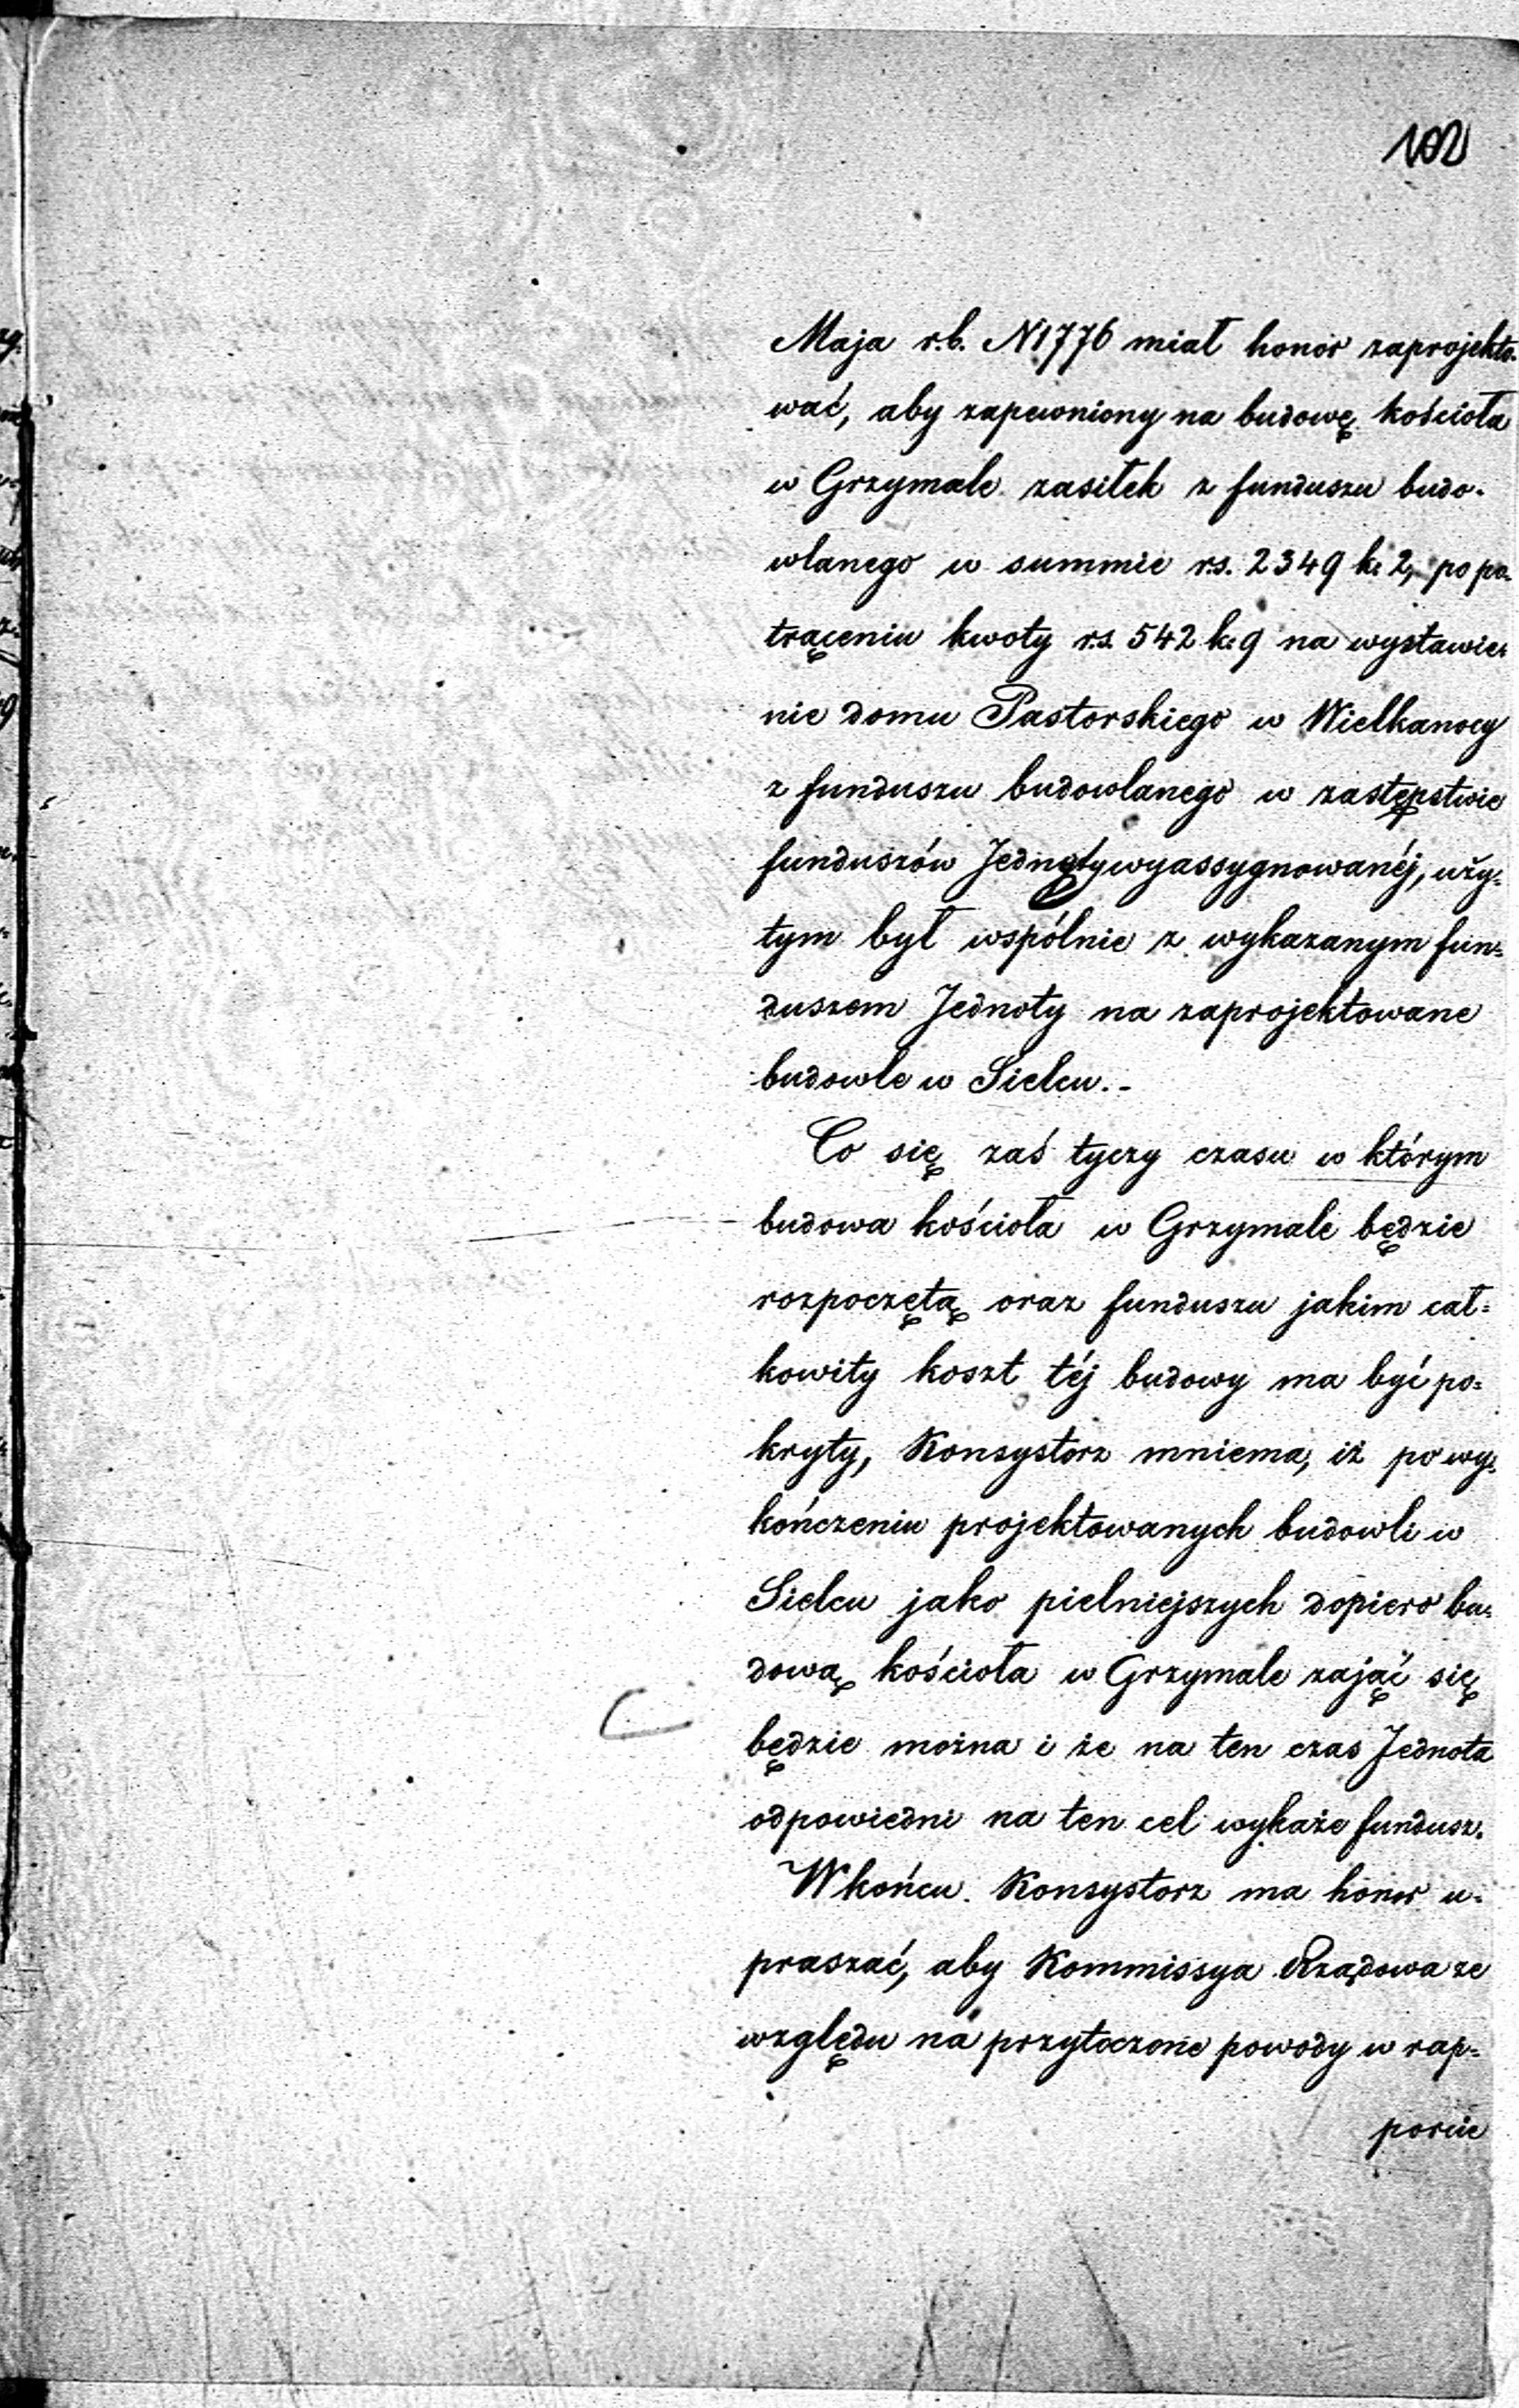 102
Maja r.b. N 1776 miał honor zaprojekto-
wać, aby zapewniony na budowę kościoła
w Grzymale zasiłek z funduszu budo-
wlanego w summie rs. 2349 k. 2, po po-
trąceniu kwoty rs. 542 k. 9 na wystawie-
nie domu Pastorskiego w Wielkanocy
z funduszu budowlanego w zastępstwie
funduszów Jednoty wyassygnowanéj, uży-
tym był wspólnie z wykazanym fun-
duszem Jednoty na zaprojektowane
budowle w Sielcu. -
Co się zaś tyczy czasu w którym
budowa kościoła w Grzymale będzie
rozpoczętą oraz funduszu jakim cał-
kowity koszt téj budowy ma być po-
kryty, Konsystorz mniema, iż po wy-
kończeniu projektowanych budowli w
Sielcu jako pielniejszych dopiero bu-
dową kościoła w Grzymale zająć się
będzie można i że na ten czas Jednota
odpowiedni na ten cel wykaże fundusz.
W końcu Konsystorz ma honor u-
praszać, aby Kommissya Rządowa ze
względu na przytoczone powody w rap-
porcie